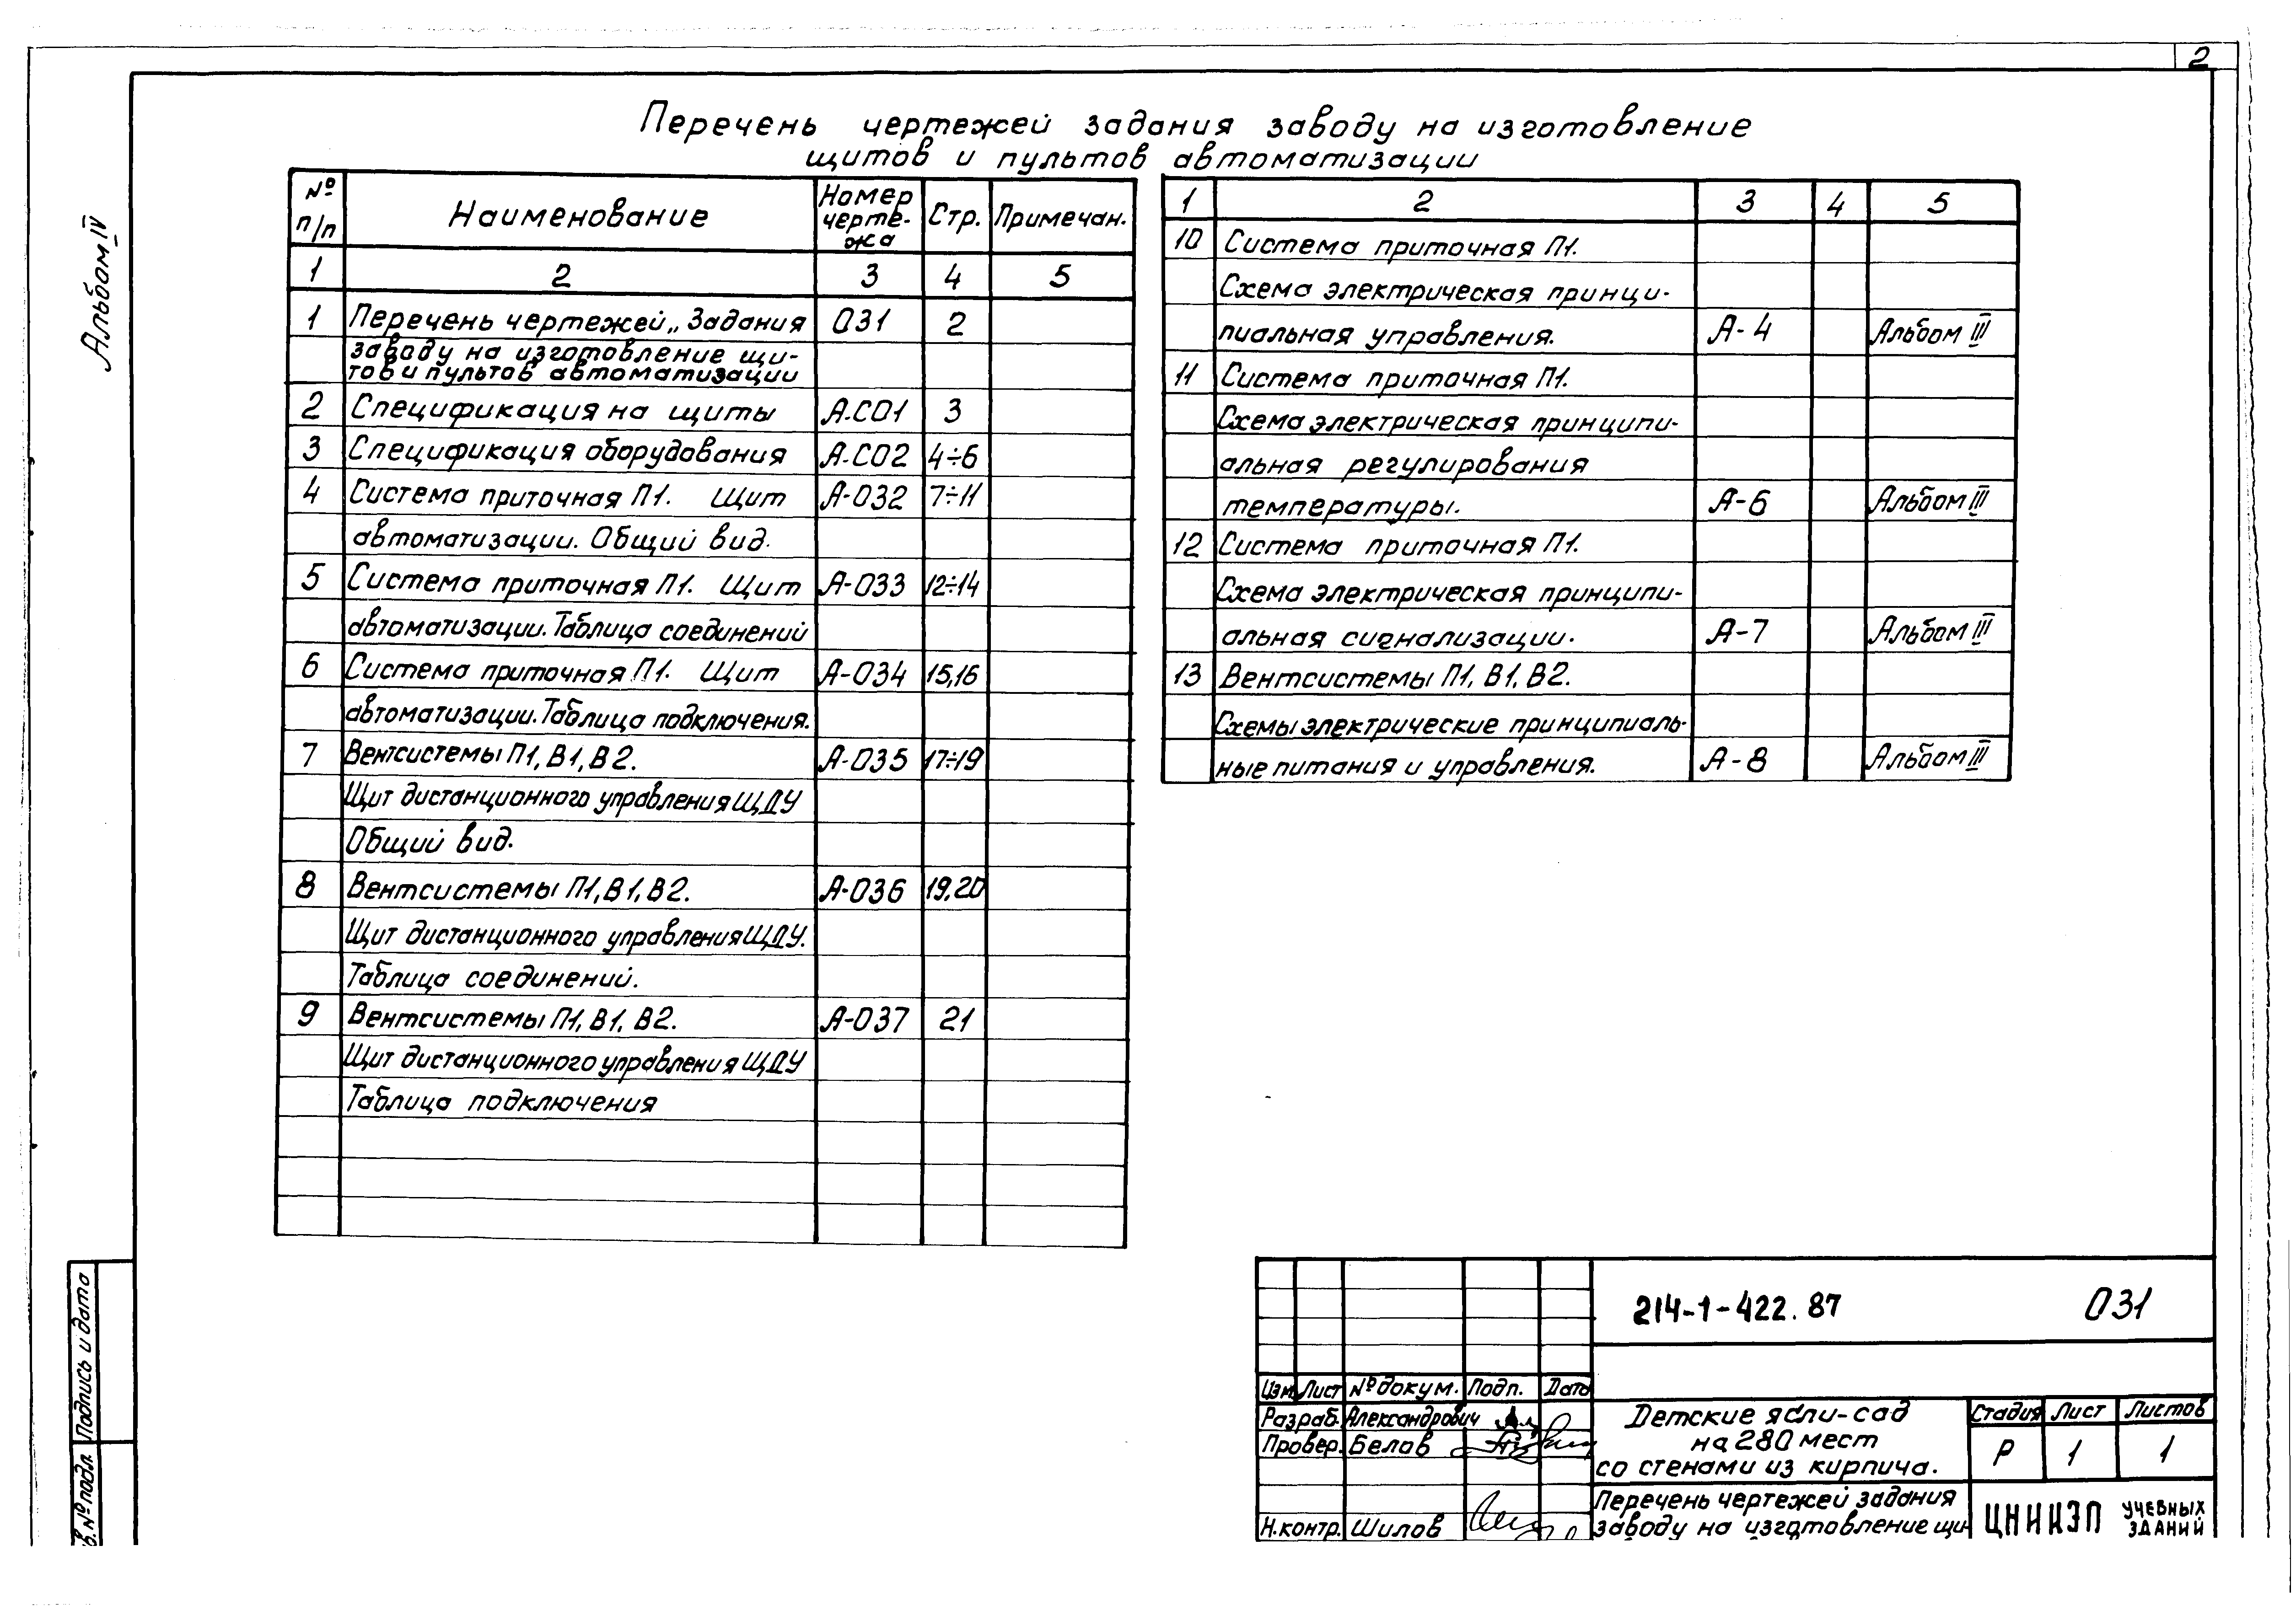 2
Альбом IV
Перечень чертежей задания заводу на изготовление
щитов и пультов автоматизации
№ п/п Наименование Номер черте-жа Стр. Примечан.
1 2 3 4 5
1 Перечень чертежей „Задания 031 2
заводу на изготовление щи-
тов и пультов автоматизации
2 Спецификация на щиты А.СО1 3
3 Спецификация оборудования А.СО2 4÷6
4 Система приточная П1. Щит А-032 7÷11
автоматизации. Общий вид.
5 Система приточная П1. Щит А-033 12÷14
автоматизации. Таблица соединений
6 Система приточная П1. Щит А-034 15,16
автоматизации. Таблица подключения.
7 Вентсистемы П1, В1, В2. А-035 17÷19
Щит дистанционного управления ЩДУ
Общий вид.
8 Вентсистемы П1, В1, В2. А-036 19,20
Щит дистанционного управления ЩДУ.
Таблица соединений.
9 Вентсистемы П1, В1, В2. А-037 21
Щит дистанционного управления ЩДУ
Таблица подключения
1 2 3 4 5
10 Система приточная П1.
Схема электрическая принци-
пиальная управления. А-4 Альбом III
11 Система приточная П1.
Схема электрическая принципи-
альная регулирования
температуры. А-6 Альбом III
12 Система приточная П1.
Схема электрическая принципи-
альная сигнализации. А-7 Альбом III
13 Вентсистемы П1, В1, В2.
Схемы электрические принципиаль-
ные питания и управления. А-8 Альбом III
214-1-422.87 031
Изм. Лист № докум. Подп. Дата
Разраб. Александрович
Провер. Белов
Н.контр. Шилов
Детские ясли-сад
на 280 мест
со стенами из кирпича.
Стадия Лист Листов
Р 1 1
Перечень чертежей задания
заводу на изготовление щи-
ЦНИИЭП УЧЕБНЫХ ЗДАНИЙ
Подпись и дата
в. № подл.